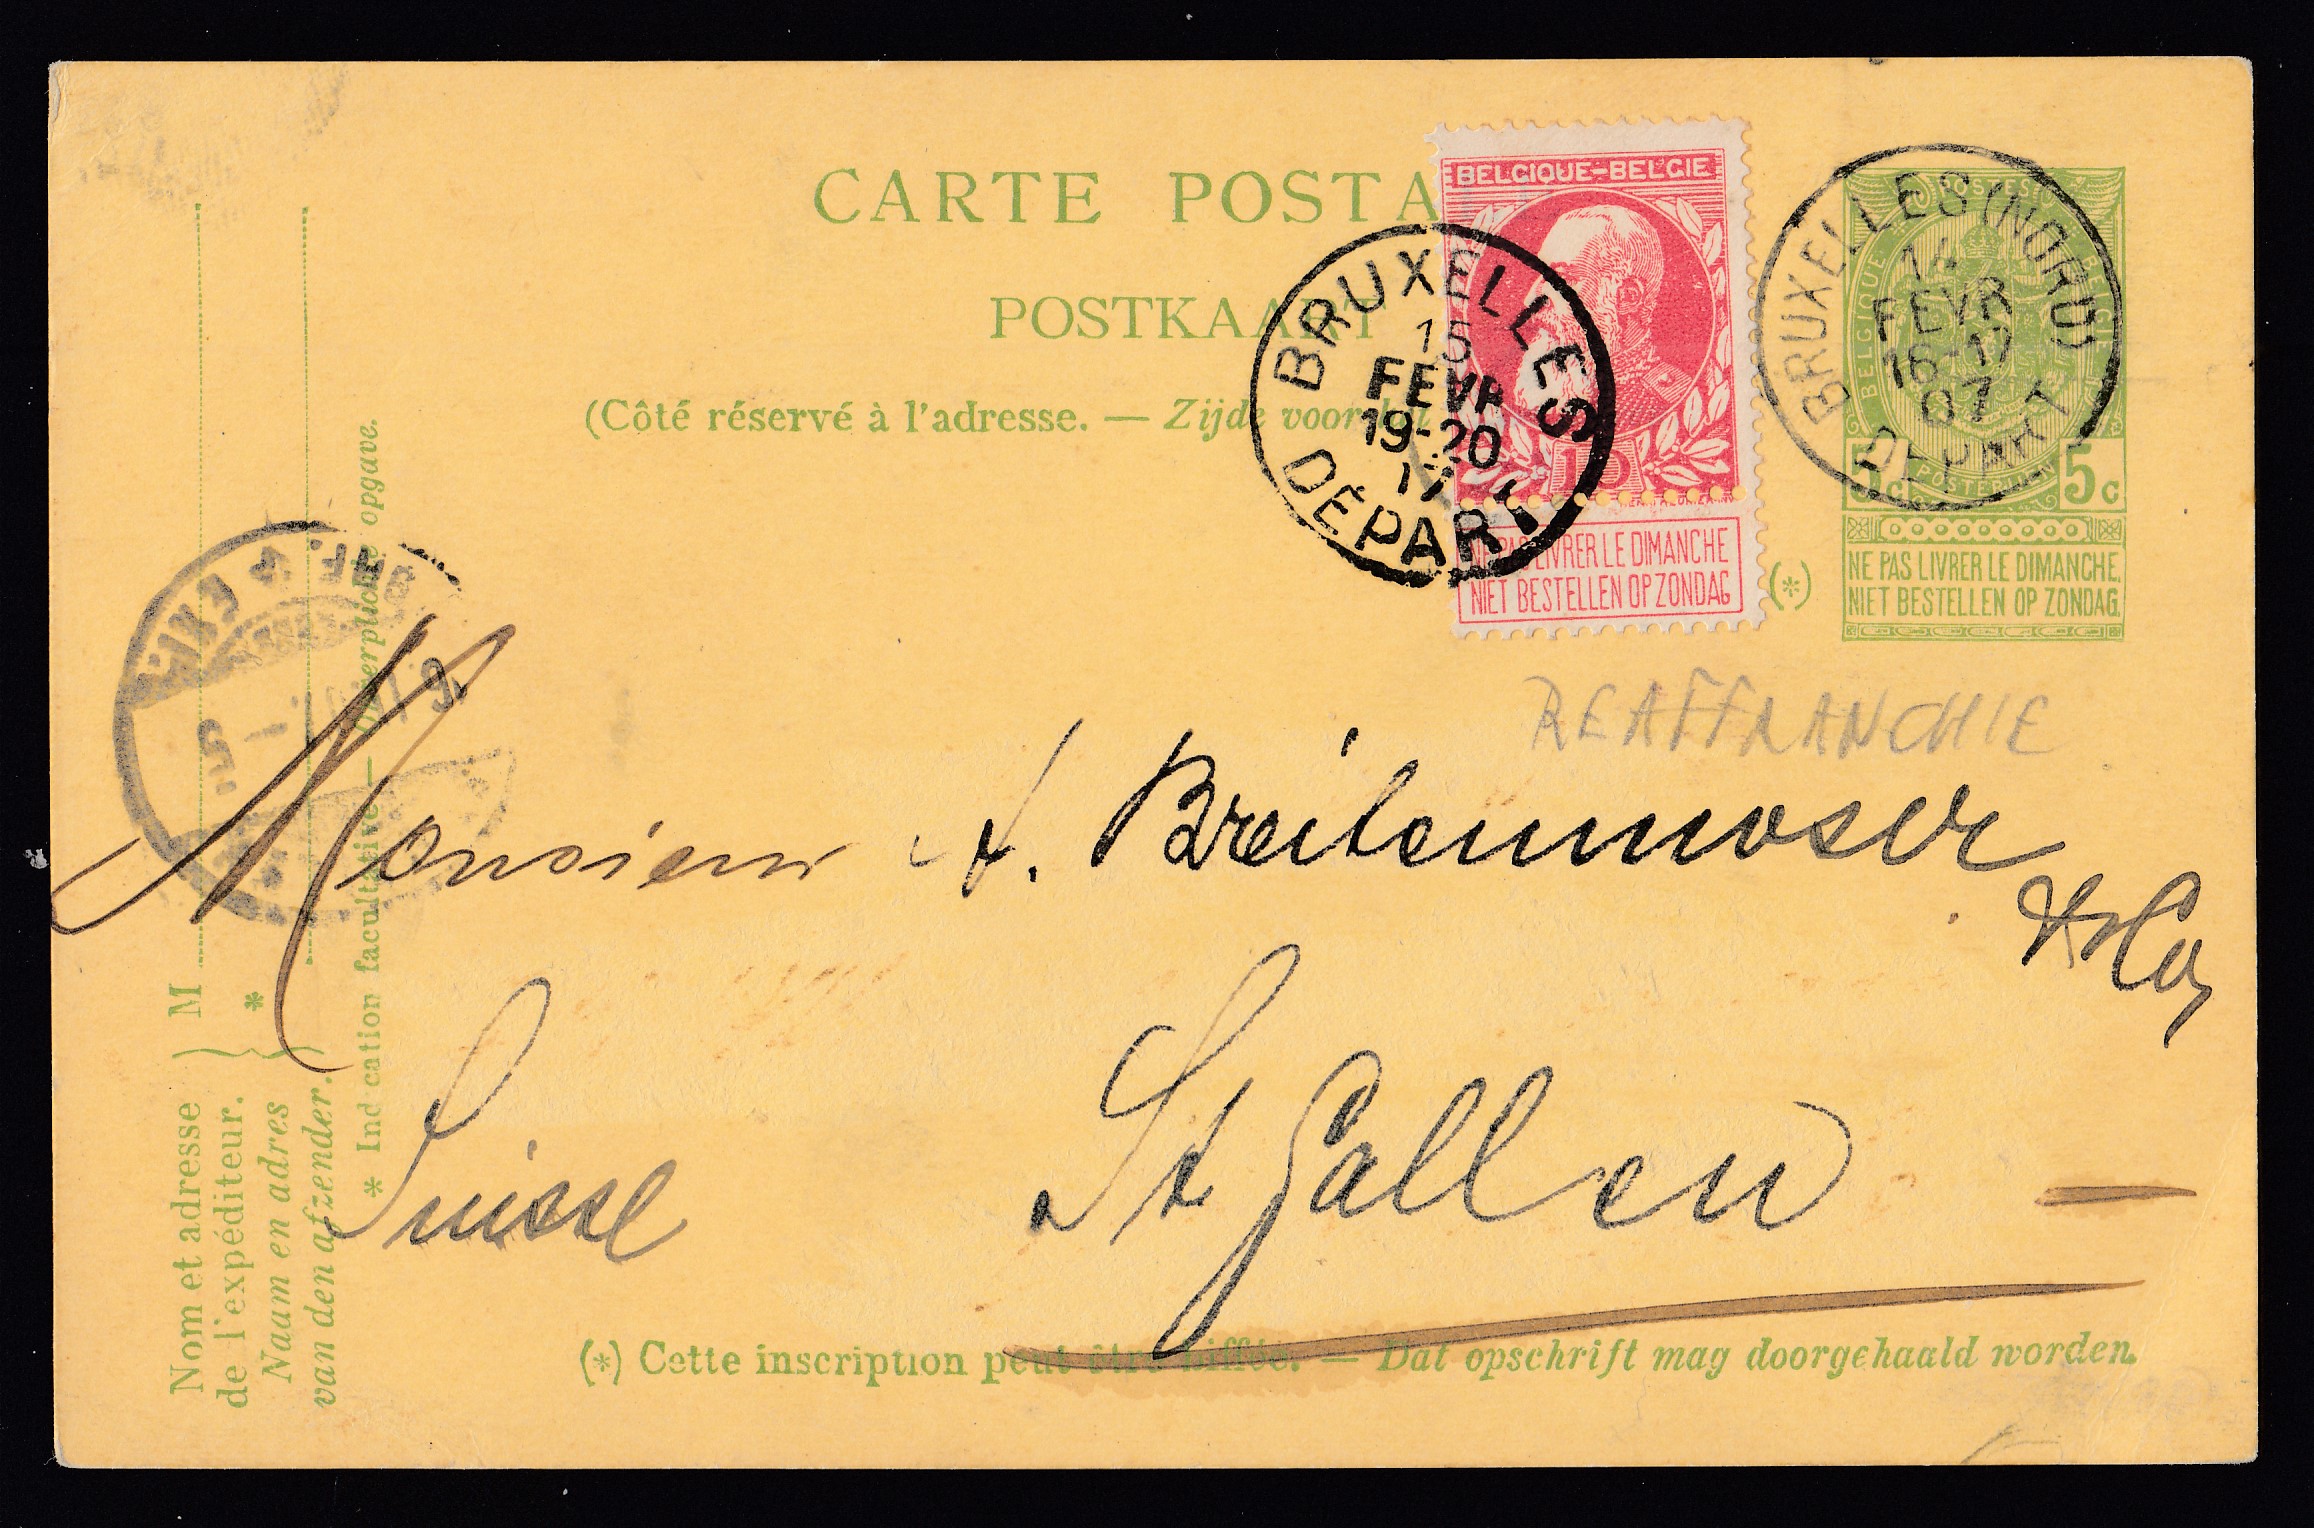 CARTE POSTA
POSTKAART
(Côté réservé à l'adresse. — Zijde voor
BELGIQUE-BELGIE
10
NE PAS LIVRER LE DIMANCHE
NIET BESTELLEN OP ZONDAG
BRUXELLES
15
FEVR
19-20
DÉPART
POSTES
BELGIQUE
BELGIE
POSTERIJEN
5c 5c
NE PAS LIVRER LE DIMANCHE.
NIET BESTELLEN OP ZONDAG.
(*)
BRUXELLES (NORD)
14
FEVR
16-17
07
DEPART
REAFFRANCHIE
Monsieur A. Breitenmoser
& Co,
St Gallen
Suisse
(*) Cette inscription peut être biffée. — Dat opschrift mag doorgehaald worden.
Nom et adresse
de l'expéditeur.
Naam en adres
van den afzender.
M
*
* Indication facultative — Onverplichte opgave.
BRF.